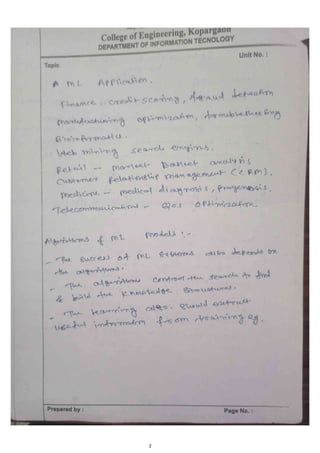 College of Engineering, Kopargaon
DEPARTMENT OF INFORMATION TECNOLOGY
Unit No. :
Topic
A ML Application.
Finance - credit scoring, fraud detection
Manufacturing optimization, troubleshooting
Bioinformatics.
Web mining search engines.
Retail - market Basket analysis
Customer Relationship management (CRM).
Medicine - medical diagnosis, prognosis.
Telecommunications - QoS optimization
Algorithms of ML Models :-
- The success of ML systems also depends on
the algorithms.
- The algorithms control the search to find
& build the knowledge structures.
- The learning algo. should extract
useful information from training eg.
Prepared by :
Page No. :
2